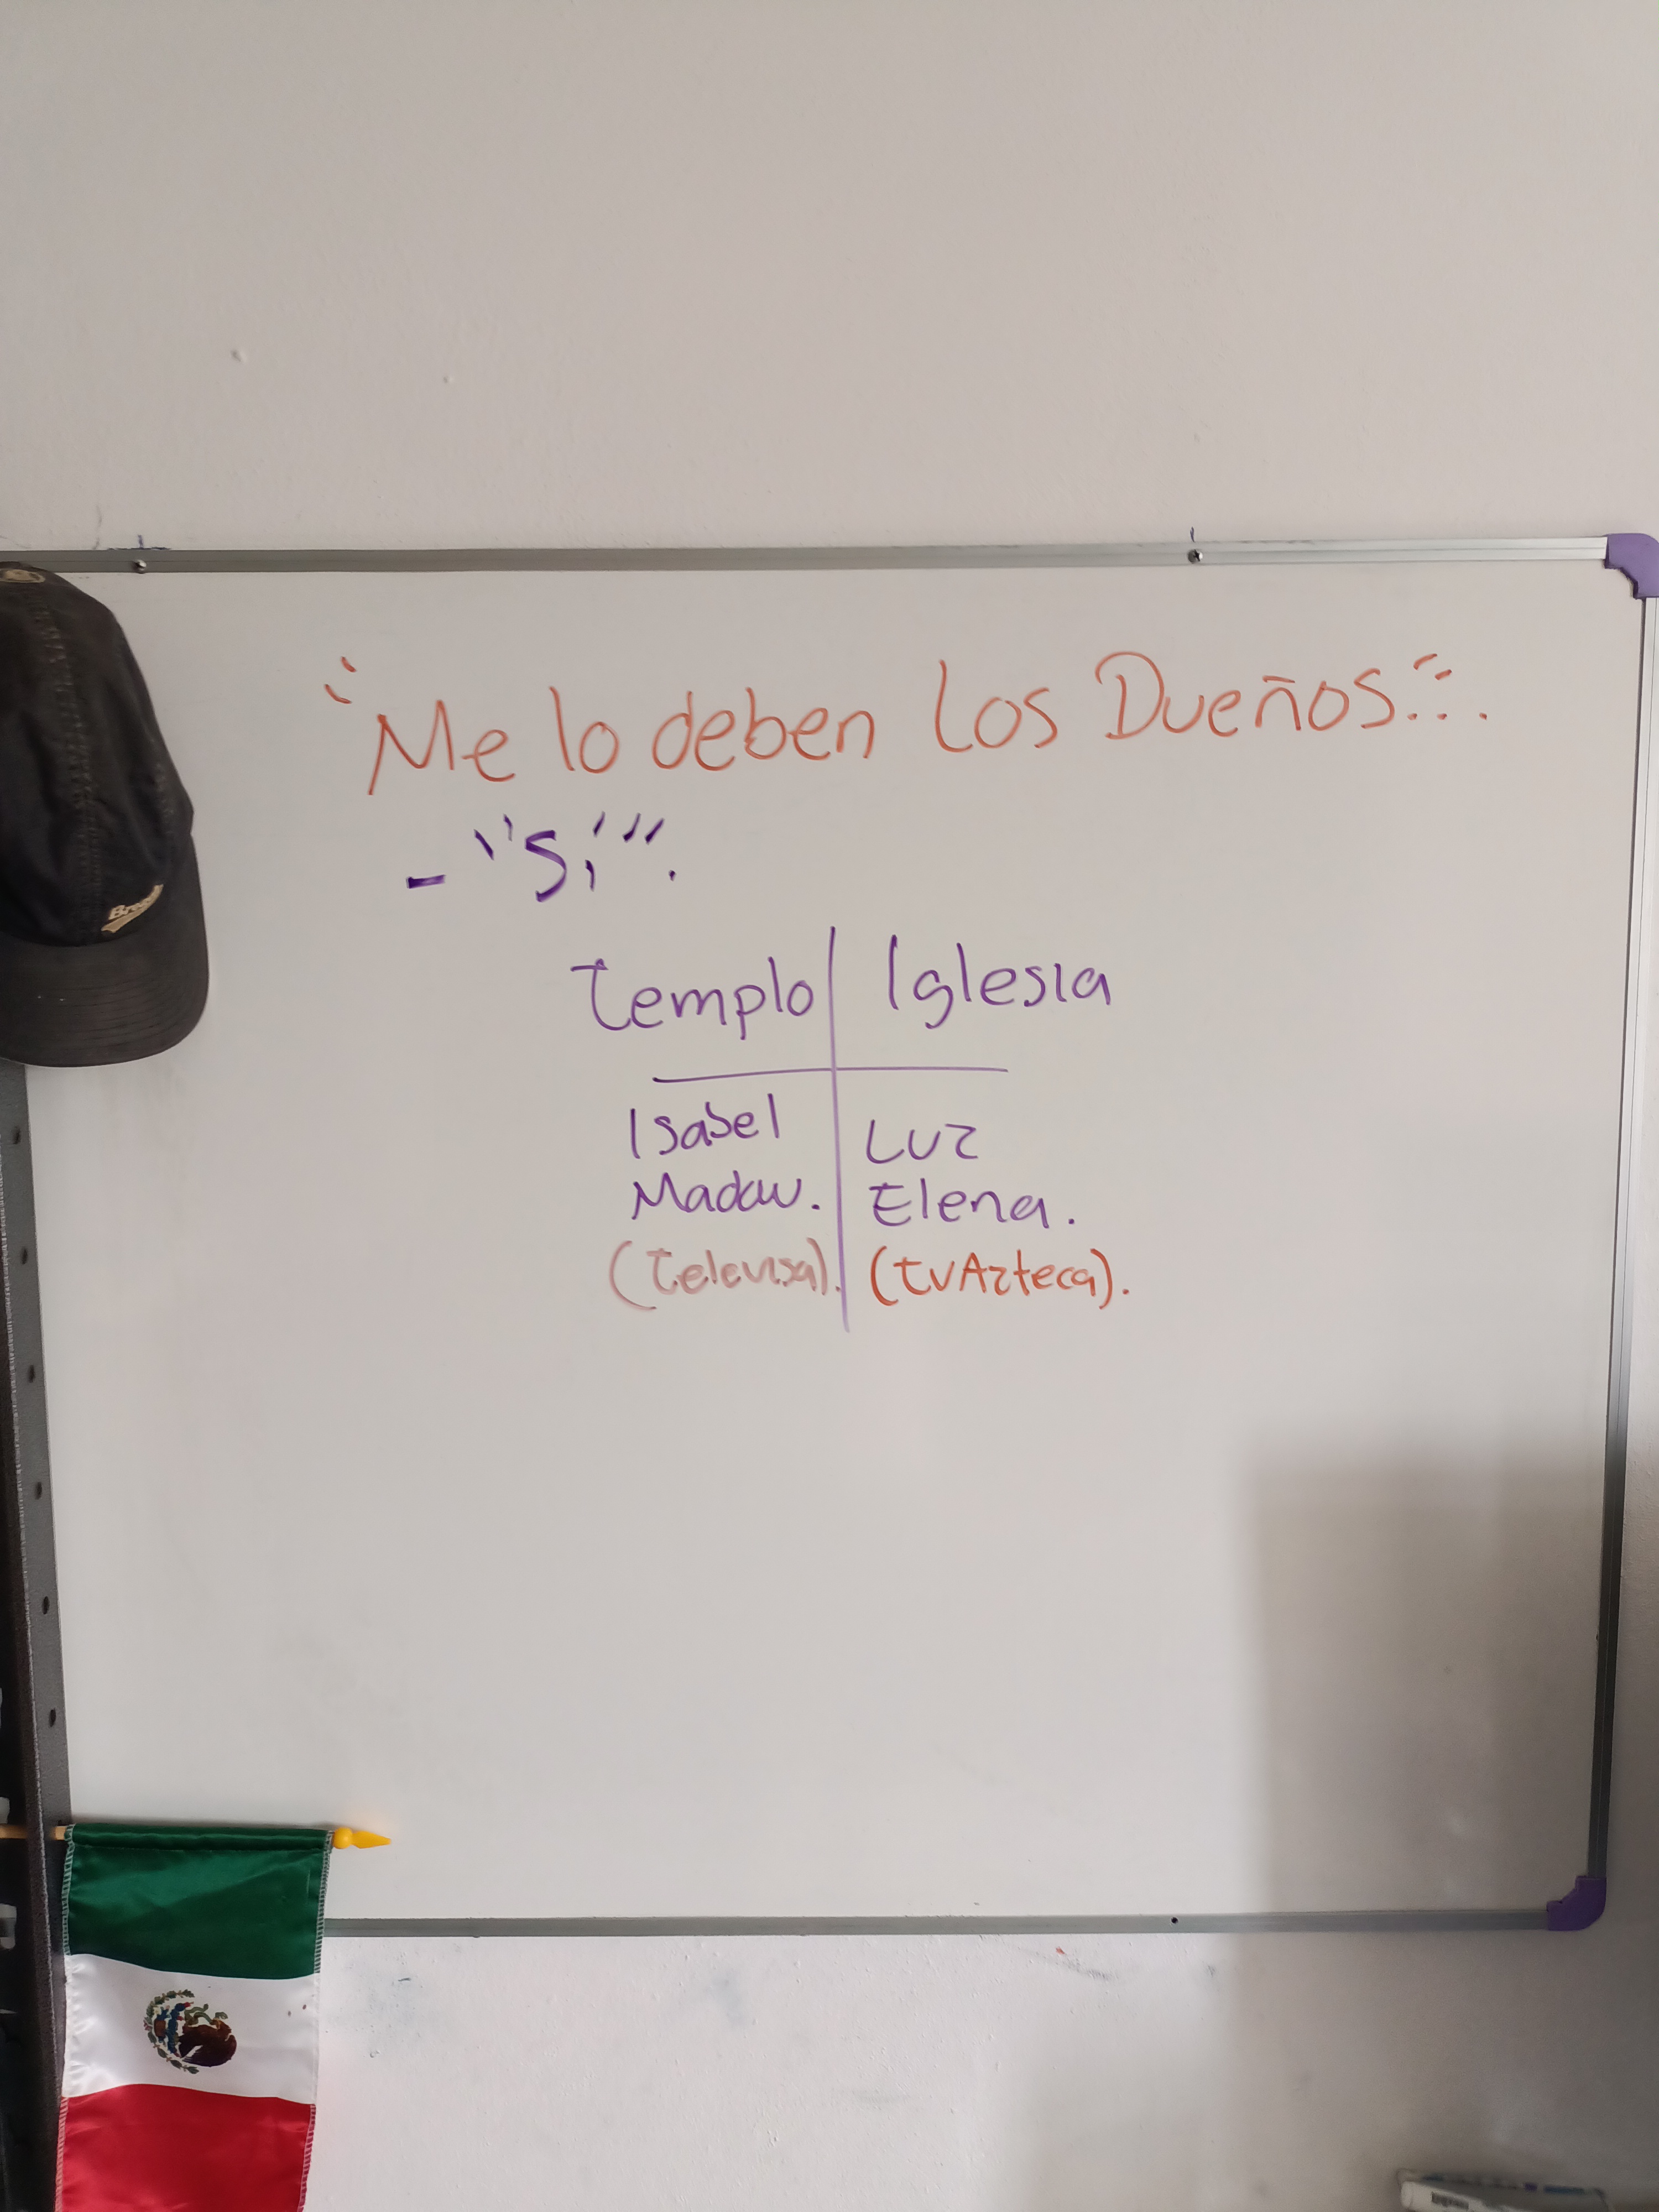 "Me lo deben Los Dueños"...
- "Si".
Templo | Iglesia
Isabel | Luz
Madaw. | Elena.
(Televisa). | (tvAzteca).